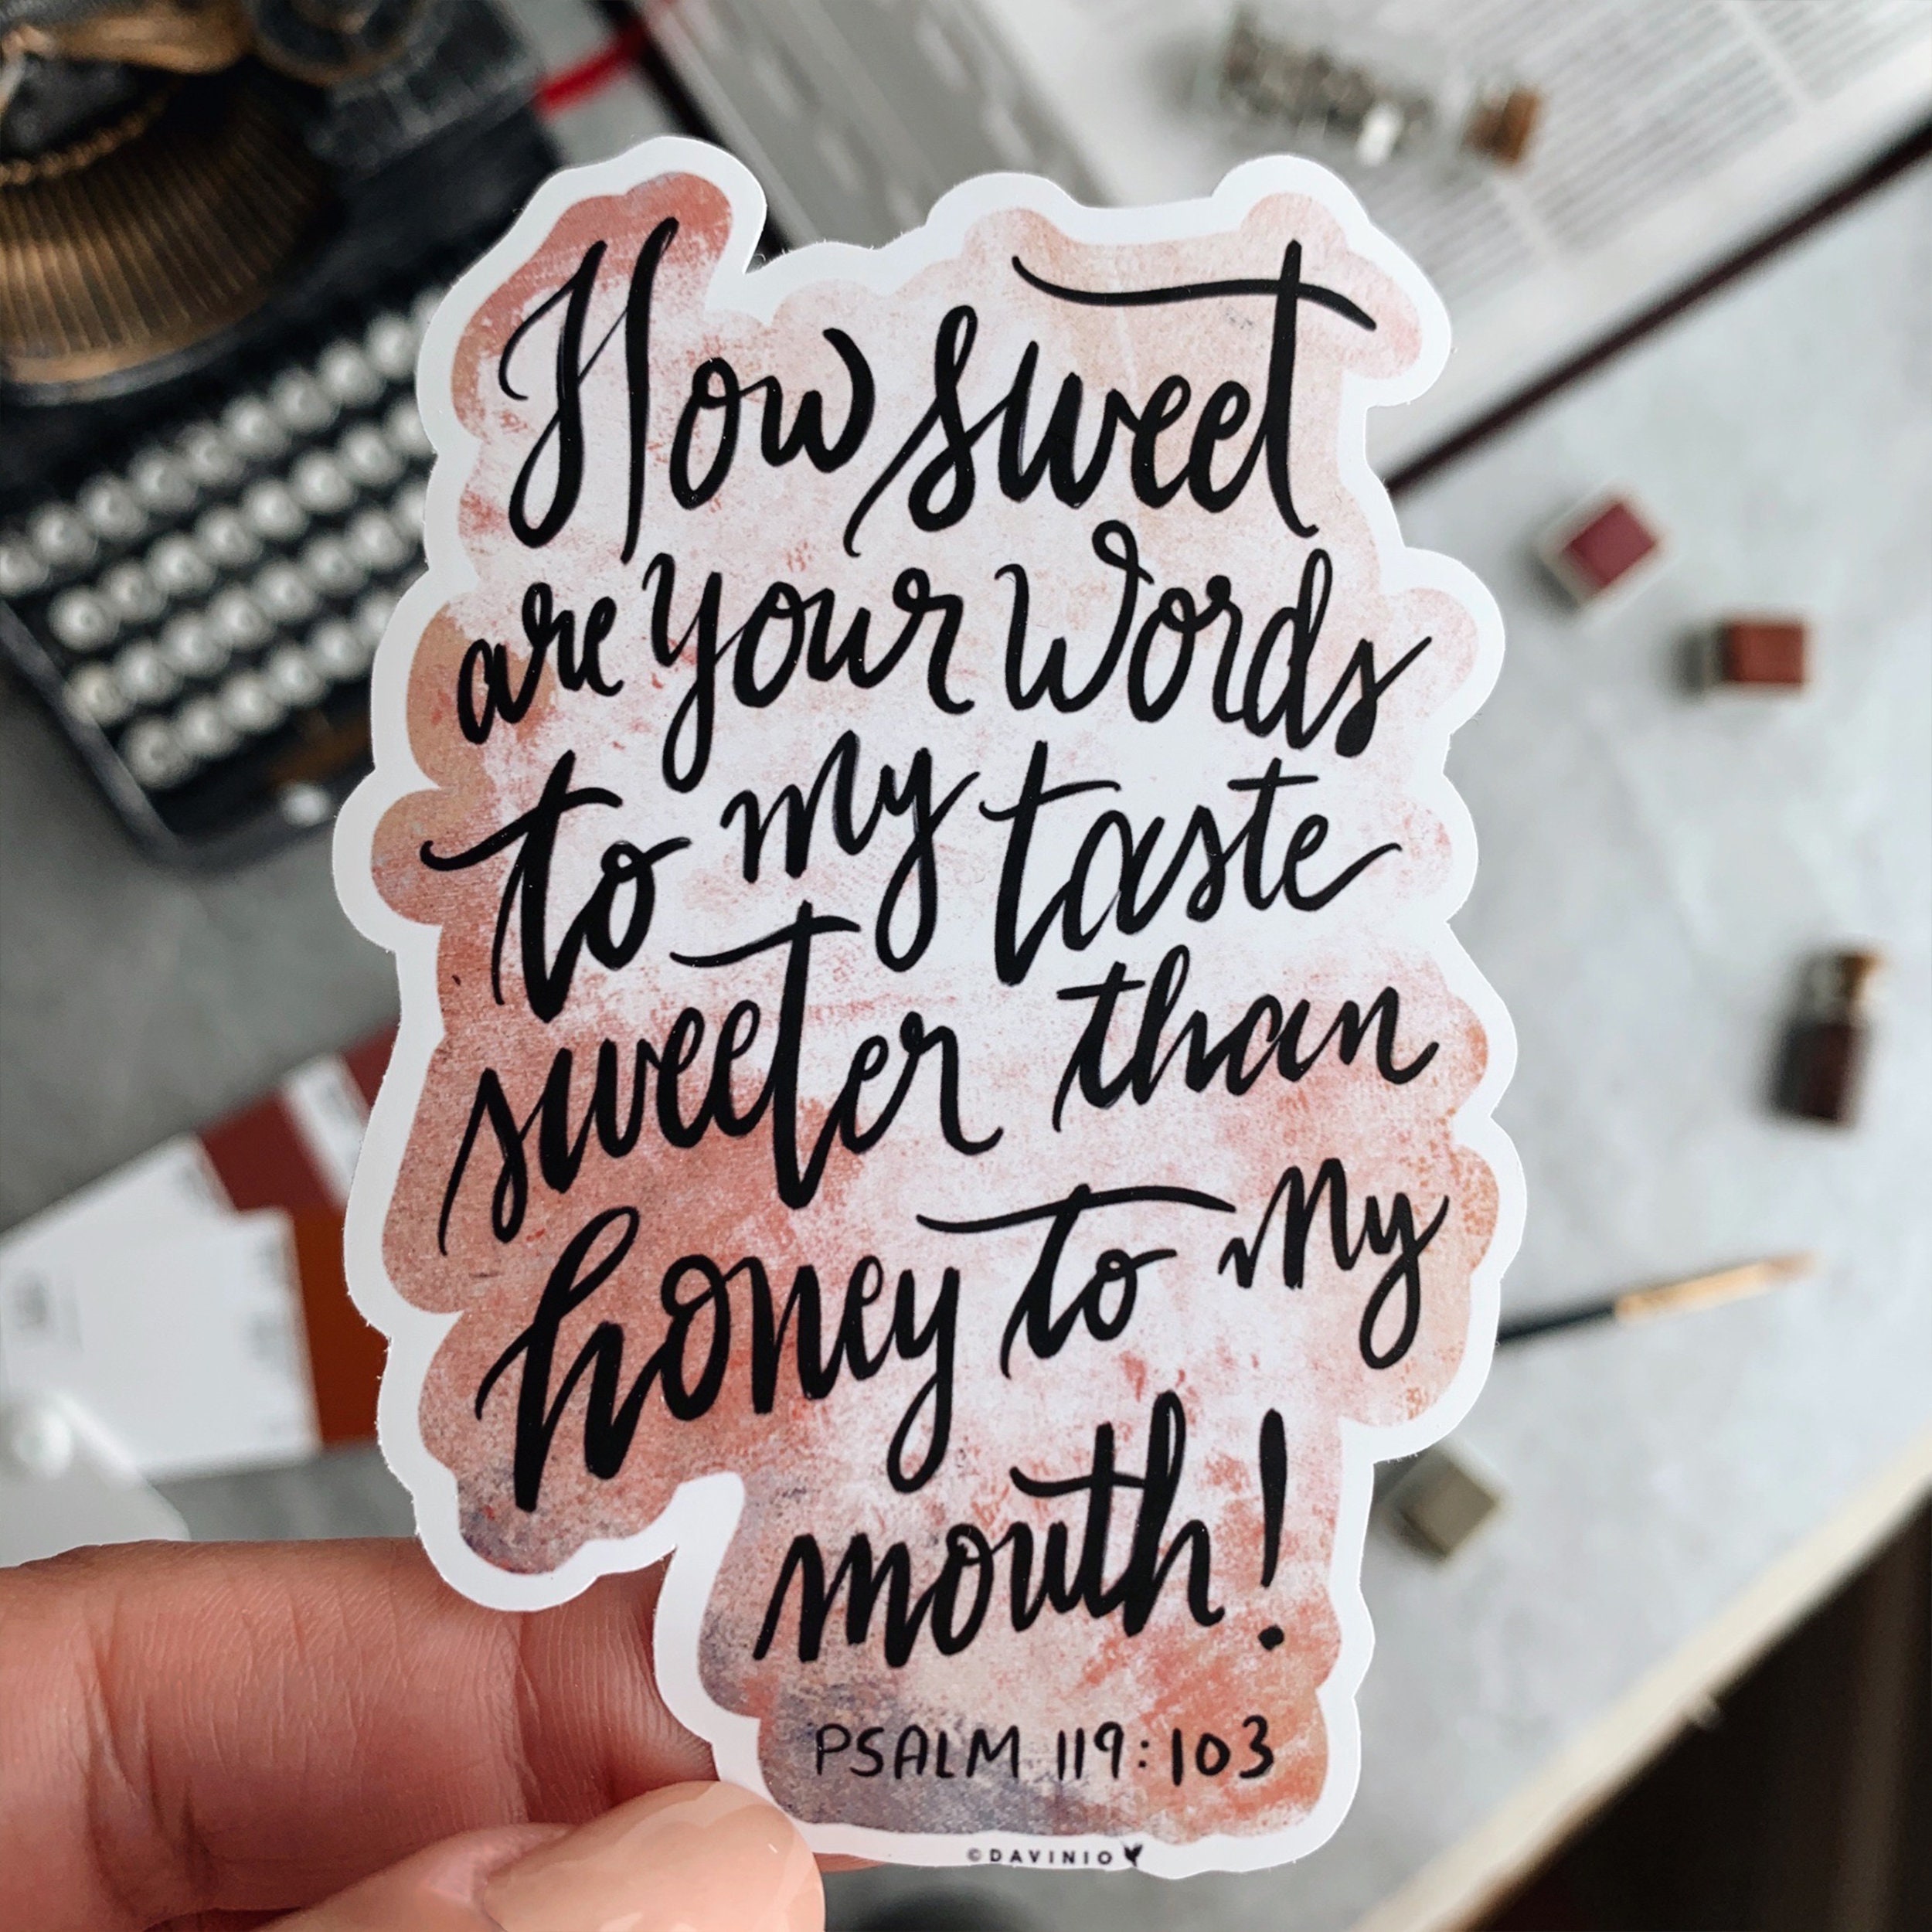 How sweet
are your words
to my taste
sweeter than
honey to my
mouth!
PSALM 119:103
©DAVINIO